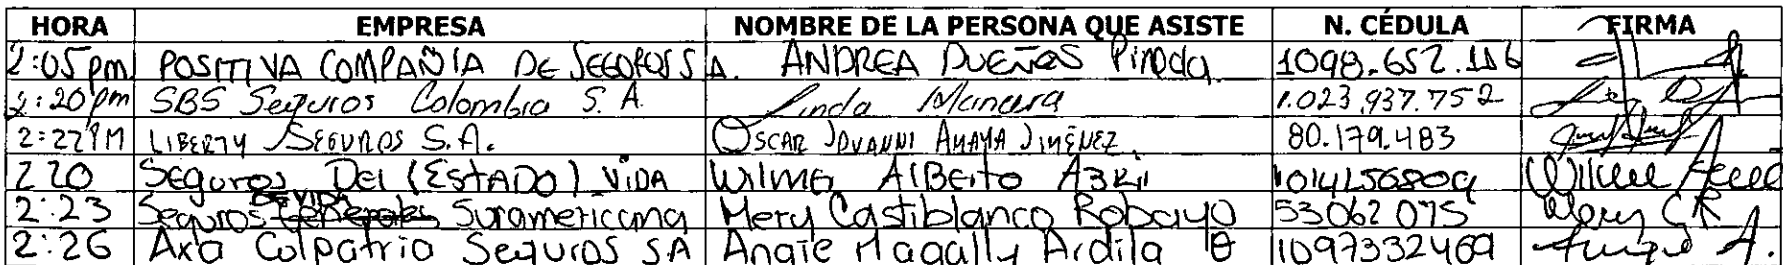 HORA EMPRESA NOMBRE DE LA PERSONA QUE ASISTE N. CÉDULA FIRMA
2:05 pm POSITIVA COMPAÑIA DE SEGUROS S.A. ANDREA DUEÑAS Pineda 1098.652.116
2:20 pm SBS Seguros Colombia S.A. Linda Mancera 1.023.937.752
2:27 PM LIBERTY SEGUROS S.A. OSCAR JOVANNI AMAYA JIMÉNEZ 80.179.483
220 SEguros DEl (EstADO) ViDA Wilmer AlBerto 1014256809
2:23 Seguros DE VIDA Suramericana Mery Castiblanco Robayo 53062075 Mery CR
2:26 Axa Colpatria Seguros SA Angie Magally Ardila 1097332469 Angie A.